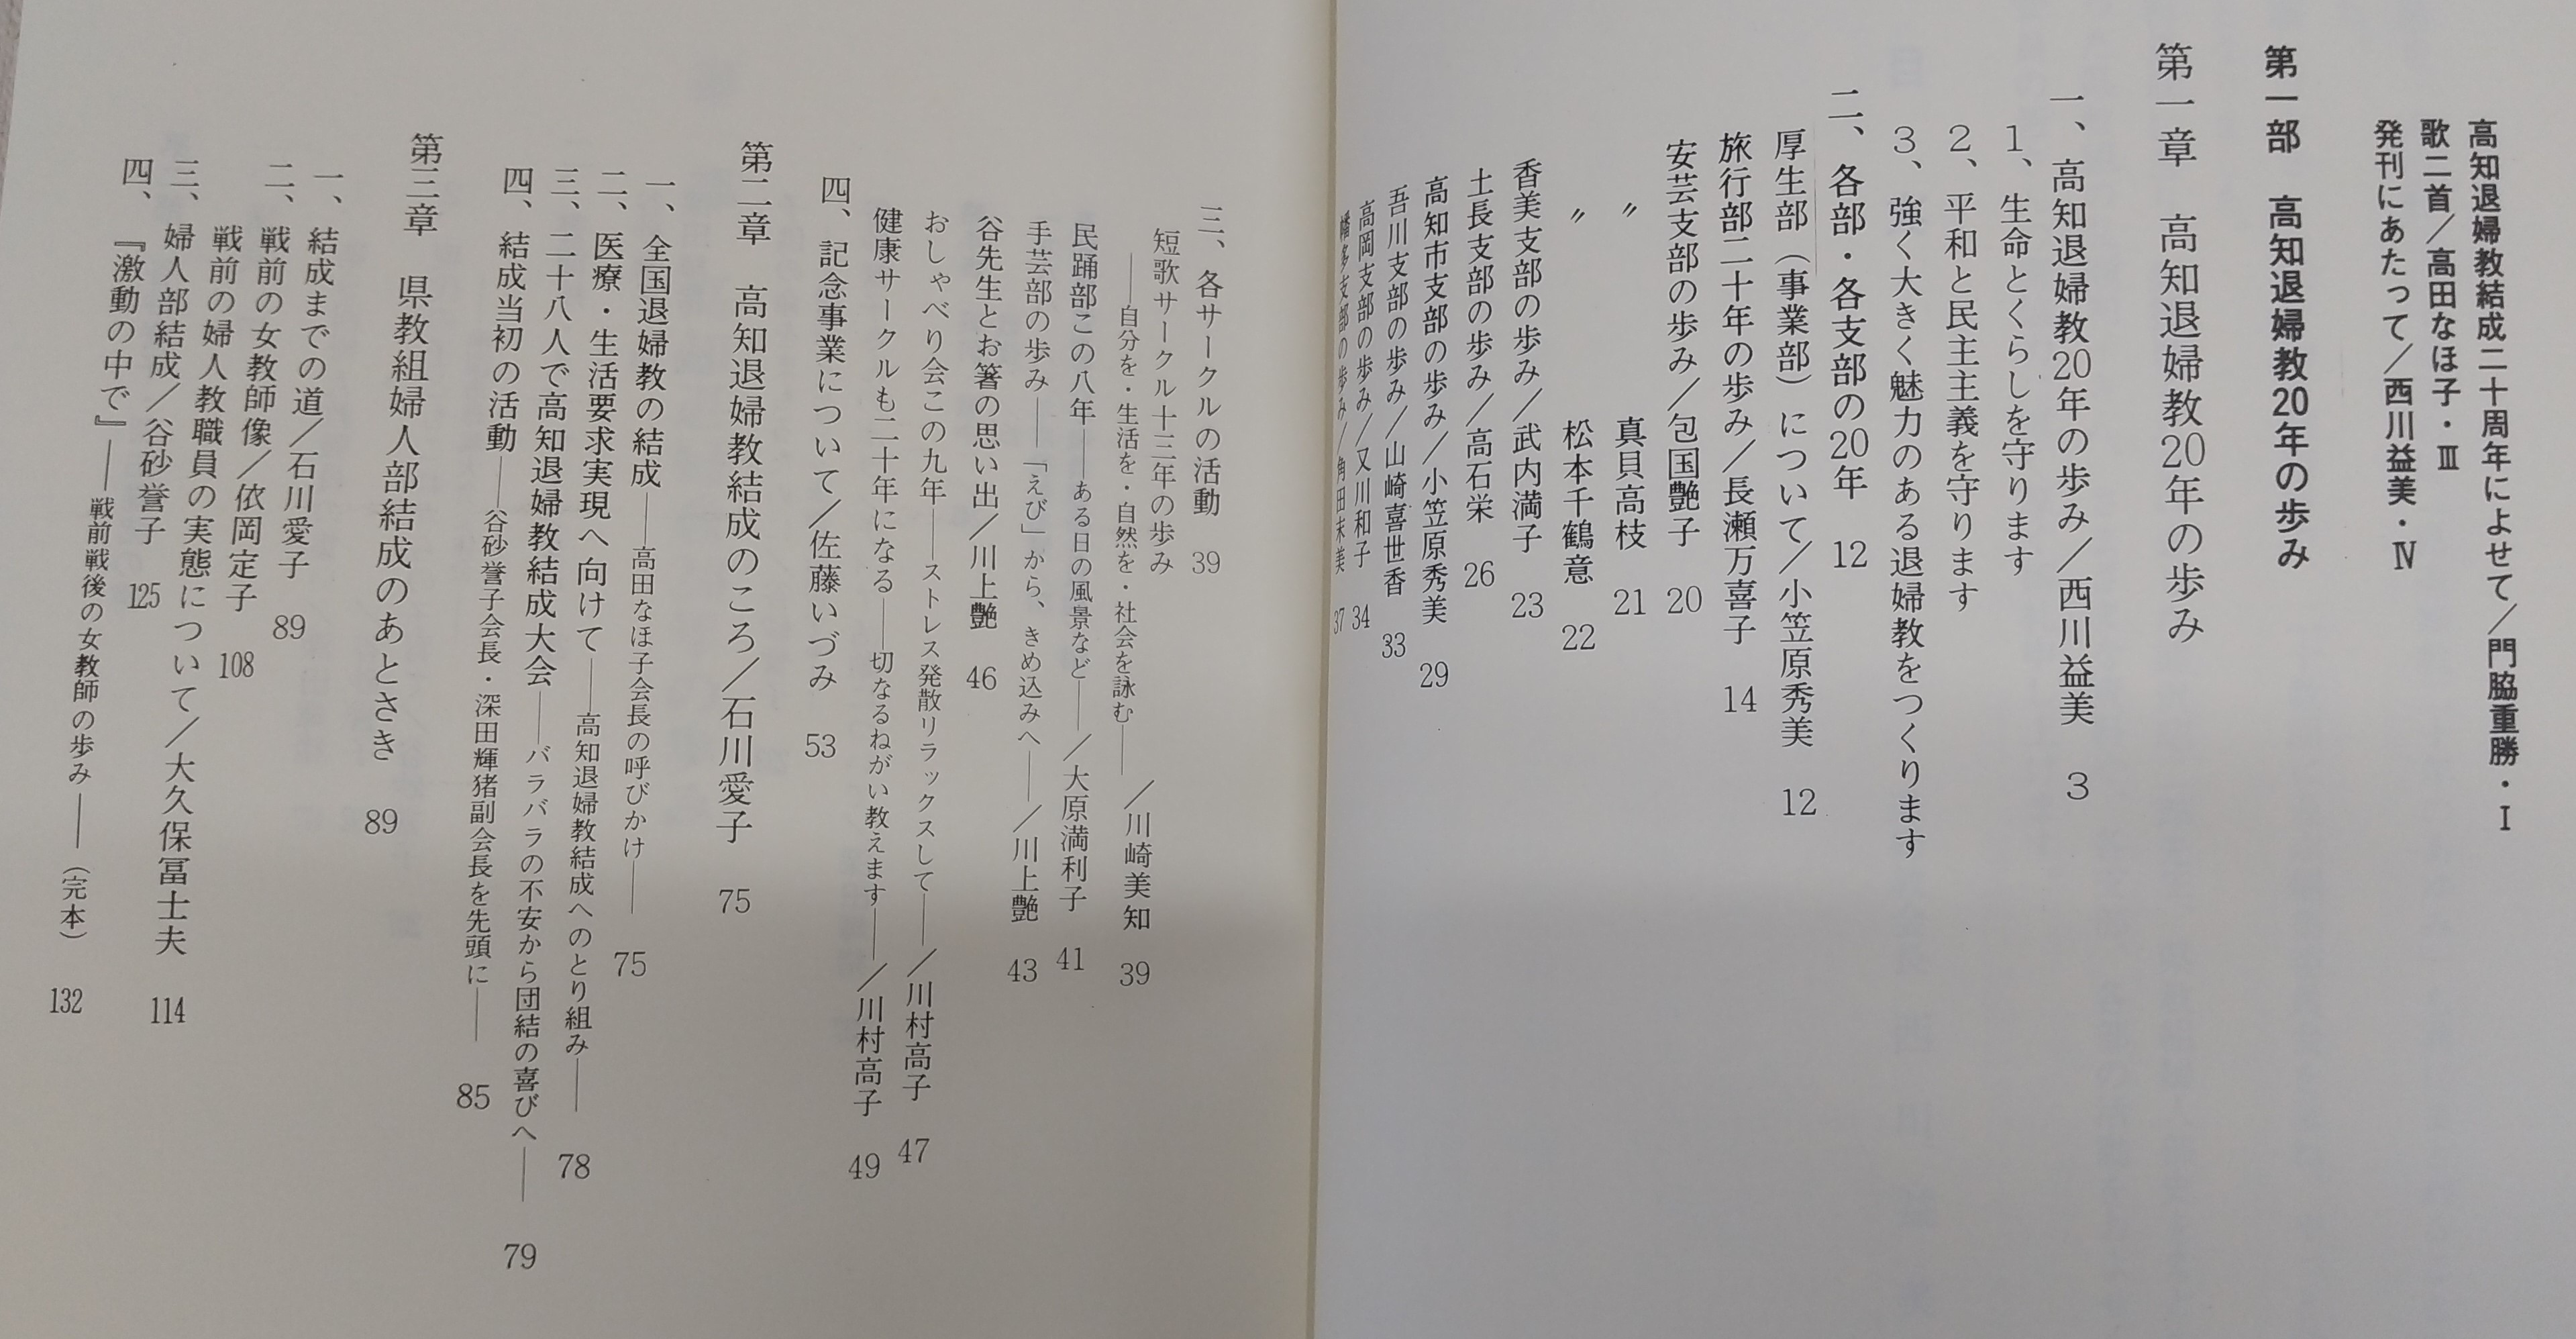 高知退婦教結成二十周年によせて／門脇重勝・Ⅰ
歌二首／高田なほ子・Ⅲ
発刊にあたって／西川益美・Ⅳ
第一部　高知退婦教20年の歩み
第一章　高知退婦教20年の歩み
一、高知退婦教20年の歩み／西川益美　3
1、生命とくらしを守ります
2、平和と民主主義を守ります
3、強く大きく魅力のある退婦教をつくります
二、各部・各支部の20年　12
厚生部（事業部）について／小笠原秀美　12
旅行部二十年の歩み／長瀬万喜子　14
安芸支部の歩み／包国艶子　20
〃　真貝高枝　21
〃　松本千鶴意　22
香美支部の歩み／武内満子　23
土長支部の歩み／高石栄　26
高知市支部の歩み／小笠原秀美　29
吾川支部の歩み／山崎喜世香　33
高岡支部の歩み／又川和子　34
幡多支部の歩み／角田末美　37
三、各サークルの活動　39
短歌サークル十三年の歩み
――自分を・生活を・自然を・社会を詠む――／川崎美知　39
民踊部この八年――ある日の風景など――／大原満利子　41
手芸部の歩み――「えび」から、きめ込みへ――／川上艶　43
谷先生とお箸の思い出／川上艶　46
おしゃべり会この九年――ストレス発散リラックスして――／川村高子　47
健康サークルも二十年になる――切なるねがい教えます――／川村高子　49
四、記念事業について／佐藤いづみ　53
第二章　高知退婦教結成のころ／石川愛子　75
一、全国退婦教の結成――高田なほ子会長の呼びかけ――　75
二、医療・生活要求実現へ向けて――高知退婦教結成へのとり組み――　78
三、二十八人で高知退婦教結成大会――バラバラの不安から団結の喜びへ――　79
四、結成当初の活動――谷砂誉子会長・深田輝猪副会長を先頭に――　85
第三章　県教組婦人部結成のあとさき　89
一、結成までの道／石川愛子　89
二、戦前の女教師像／依岡定子　108
戦前の婦人教職員の実態について／大久保冨士夫　114
三、婦人部結成／谷砂誉子　125
四、『激動の中で』――戦前戦後の女教師の歩み――（完本）　132